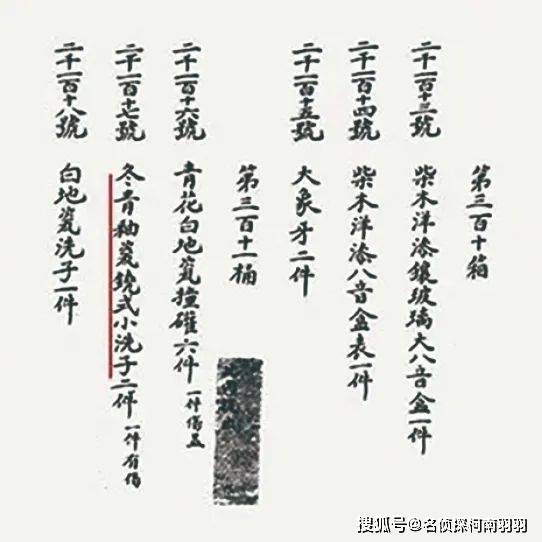 第三百十箱
二千一百十三號 柴木洋漆銀玻璃大八音盒一件
二千一百十四號 柴木洋漆八音盒表一件
二千一百十五號 大象牙二件
第三百十一桶
二千一百十六號 青花白地瓷撞礶六件 一件傷蓋
二千一百十七號 冬青釉瓷鏡式小洗子二件 一件有傷
二千一百十八號 白地瓷洗子一件
搜狐号@名侦探柯南羽羽